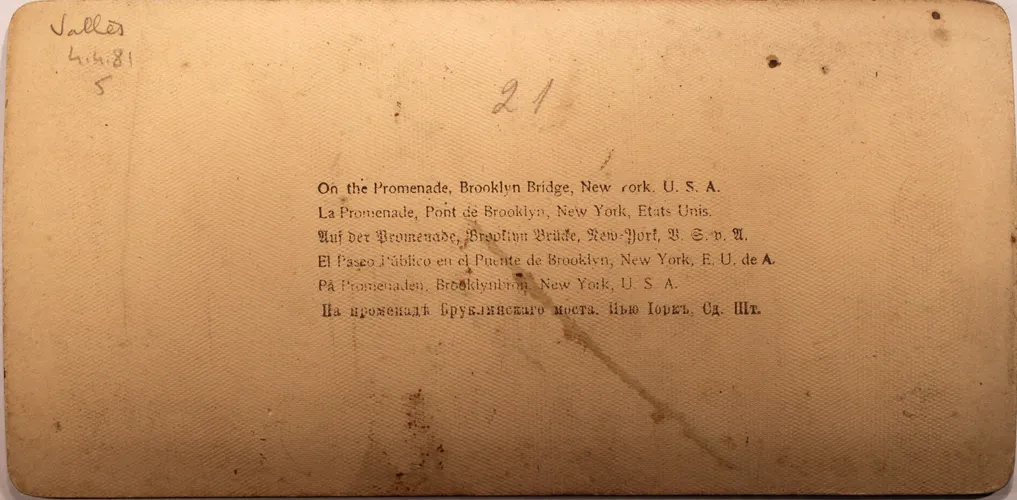 Vallès
4.4.81
5
21
On the Promenade, Brooklyn Bridge, New York. U. S. A.
La Promenade, Pont de Brooklyn, New York, Etats Unis.
Auf der Promenade, Brooklyn Brücke, New-York, V. S. v. A.
El Paseo Público en el Puente de Brooklyn, New York, E. U. de A.
På Promenaden, Brooklynbron, New York, U. S. A.
На променадѣ Бруклинскаго моста, Нью Іоркъ, Сд. Шт.